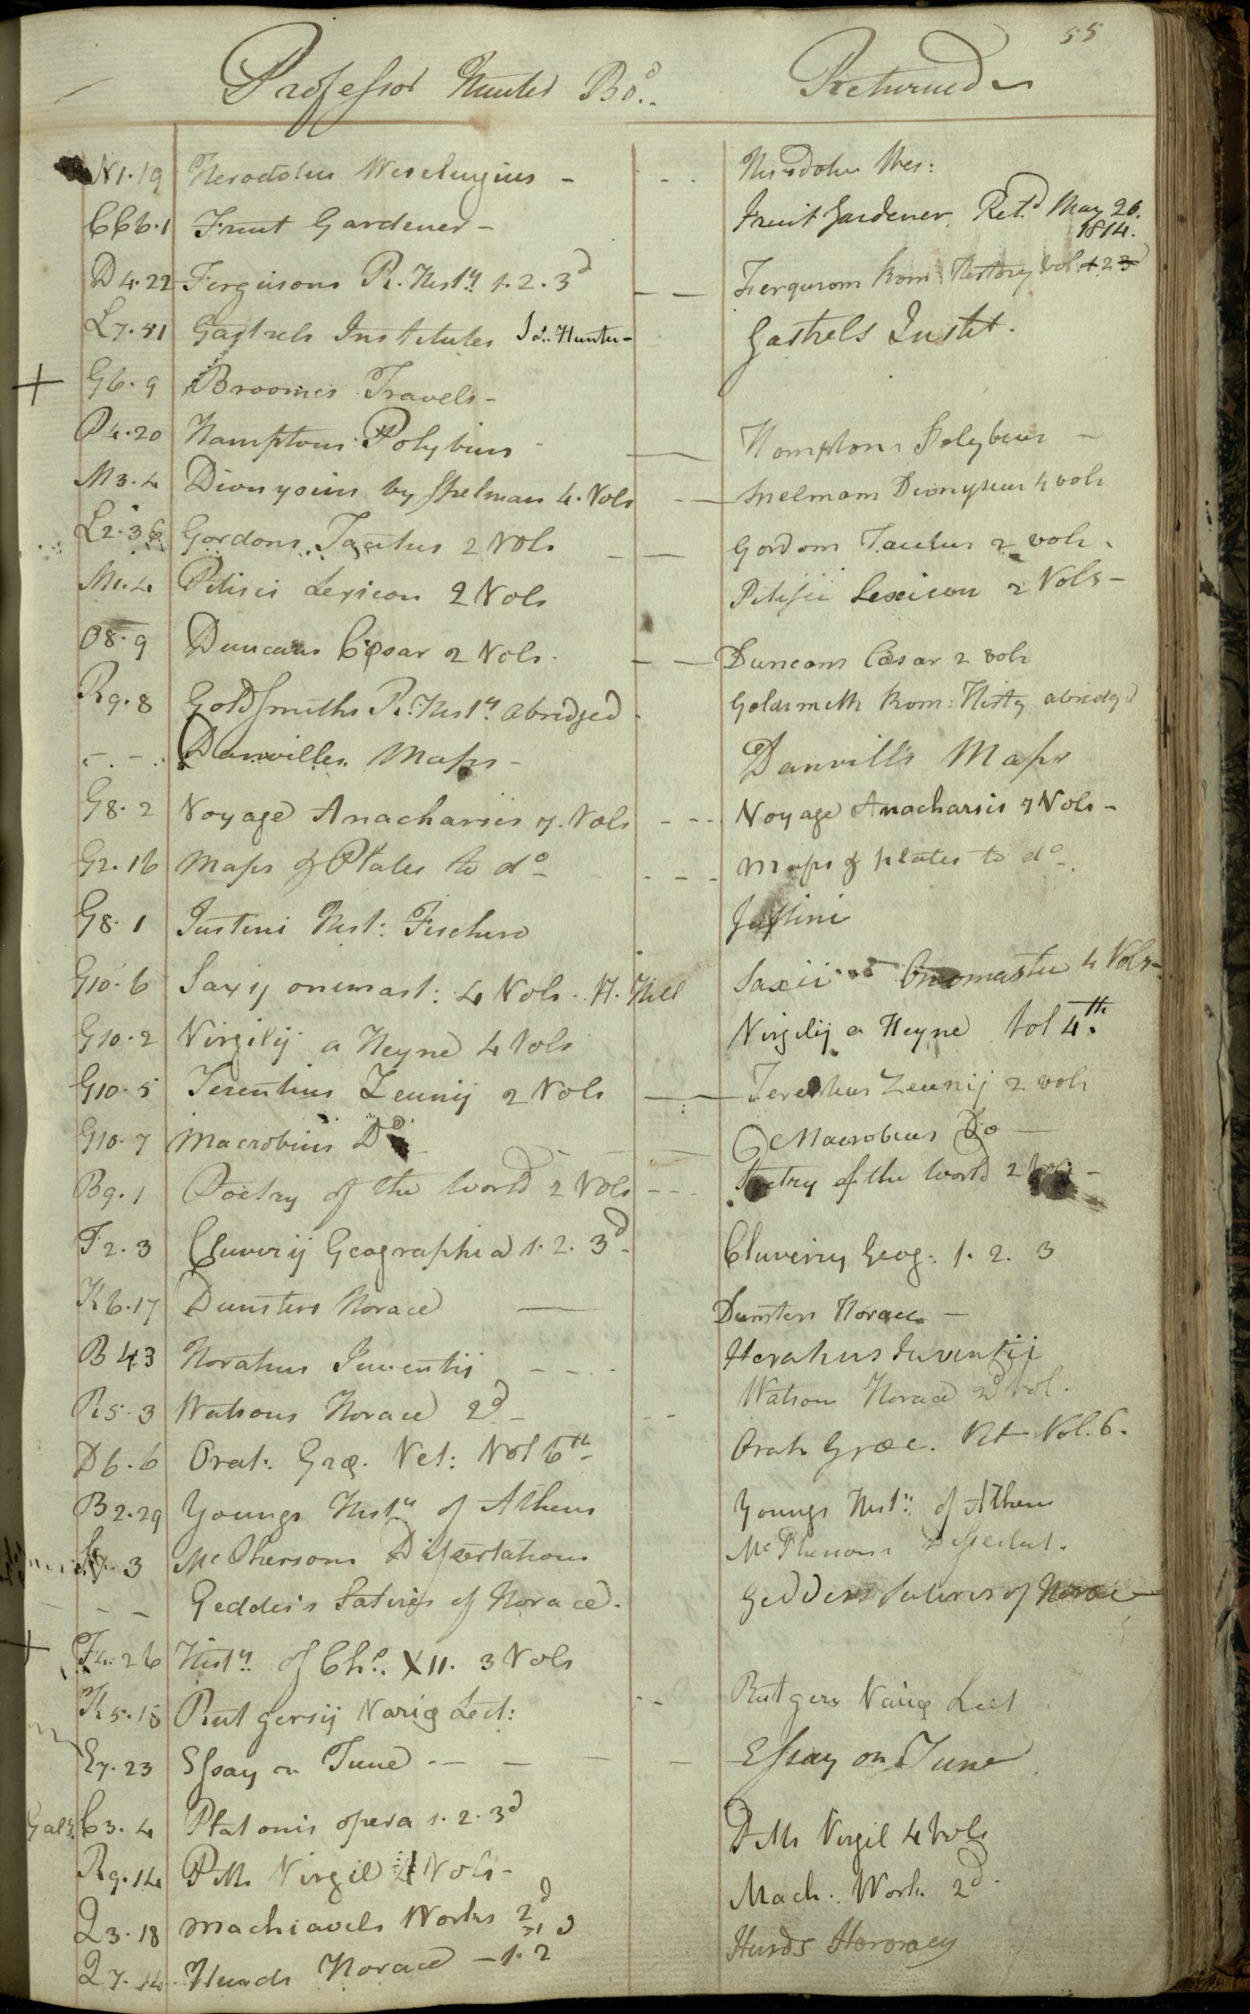 55
Professor Hunter Bo.d Returned
N1.19 Herodotus Weselingius - Herodotus Wes:
CC6.1 Fruit Gardener - Fruit Gardener. Ret.d May 26. 1814.
D4.22 Fergusons R. Hist.y 1.2.3d Fergusons Rom History Vol 1 2 3d
L7.51 Gastrels Institutes Jo. Hunter - Gastrels Instit.
+ G6.9 Broomes Travels -
P4.20 Hamptons Polybius - Hamptons Polybius -
M3.4 Dionysius by Spelman 4. Vols Spelmans Dionysius 4 vols
L2.36 Gordons Tacitus 2 Vols Gordons Tacitus 2 vols.
M1.4 Pitisci Lexicon 2 Vols Pitisci Lexicon 2 Vols -
O8.9 Duncans Cæsar 2 Vols. Duncans Cæsar 2 vols
R9.8 Goldsmiths R. Hist.y abridged Goldsmith Rom: Histy abridgd
- - - Danvilles Maps - Danvill's Maps
G8.2 Voyage Anacharsis 7. Vols Voyage Anacharsis 7 Vols -
G2.16 Maps & Plates to do - Maps & plates to do -
G8.1 Justini Hist: Fischero Justini
G10.6 Saxij onimast: 4 Vols. H. Hill Saxii Onomastic 4 Vols -
G10.2 Virgilij a Heyne 4 Vols Virgilij a Heyne Vol 4th.
G10.5 Terentius Zeunij 2 Vols Terentius Zeunij 2 vols
G10.7 Macrobius Do - Macrobius Do -
B9.1 Poetry of the World 2 Vols Poetry of the World 2 Vols -
F2.3 Cluverij Geographia 1.2.3d - Cluverij Geog: 1. 2. 3
K6.17 Dunsters Horace Dunsters Horace -
B43 Horatius Juventij Horatius Juventij
R5.3 Watsons Horace 2d - Watsons Horace 2d vol.
D6.6 Orat. Græ. Vet: Vol 6th - Orat. Græc. Vet Vol. 6.
B2.29 Youngs Hist.y of Athens Youngs Hist.y of Athens
3 McPhersons Dissertations McPhersons Dissertat.
- - Geddes's Satires of Horace. Geddes's Satires of Horace
+ F4.26 Hist.y of Chs. XII. 3 Vols
K5.15 Rutgersij Variæ Lect: Rutgers Variæ Lect
E7.23 Essay on Tune - - - Essay on Tune
C3.4 Platonis opera 1.2.3d
R9.14 P.M. Virgil 4 Vols - P.M. Virgil 4 Vols
Q3.18 Machiavels Works 2d Mach. Works 2d.
Q7.14 Hurds Horace - 1.2 Hurds Horace